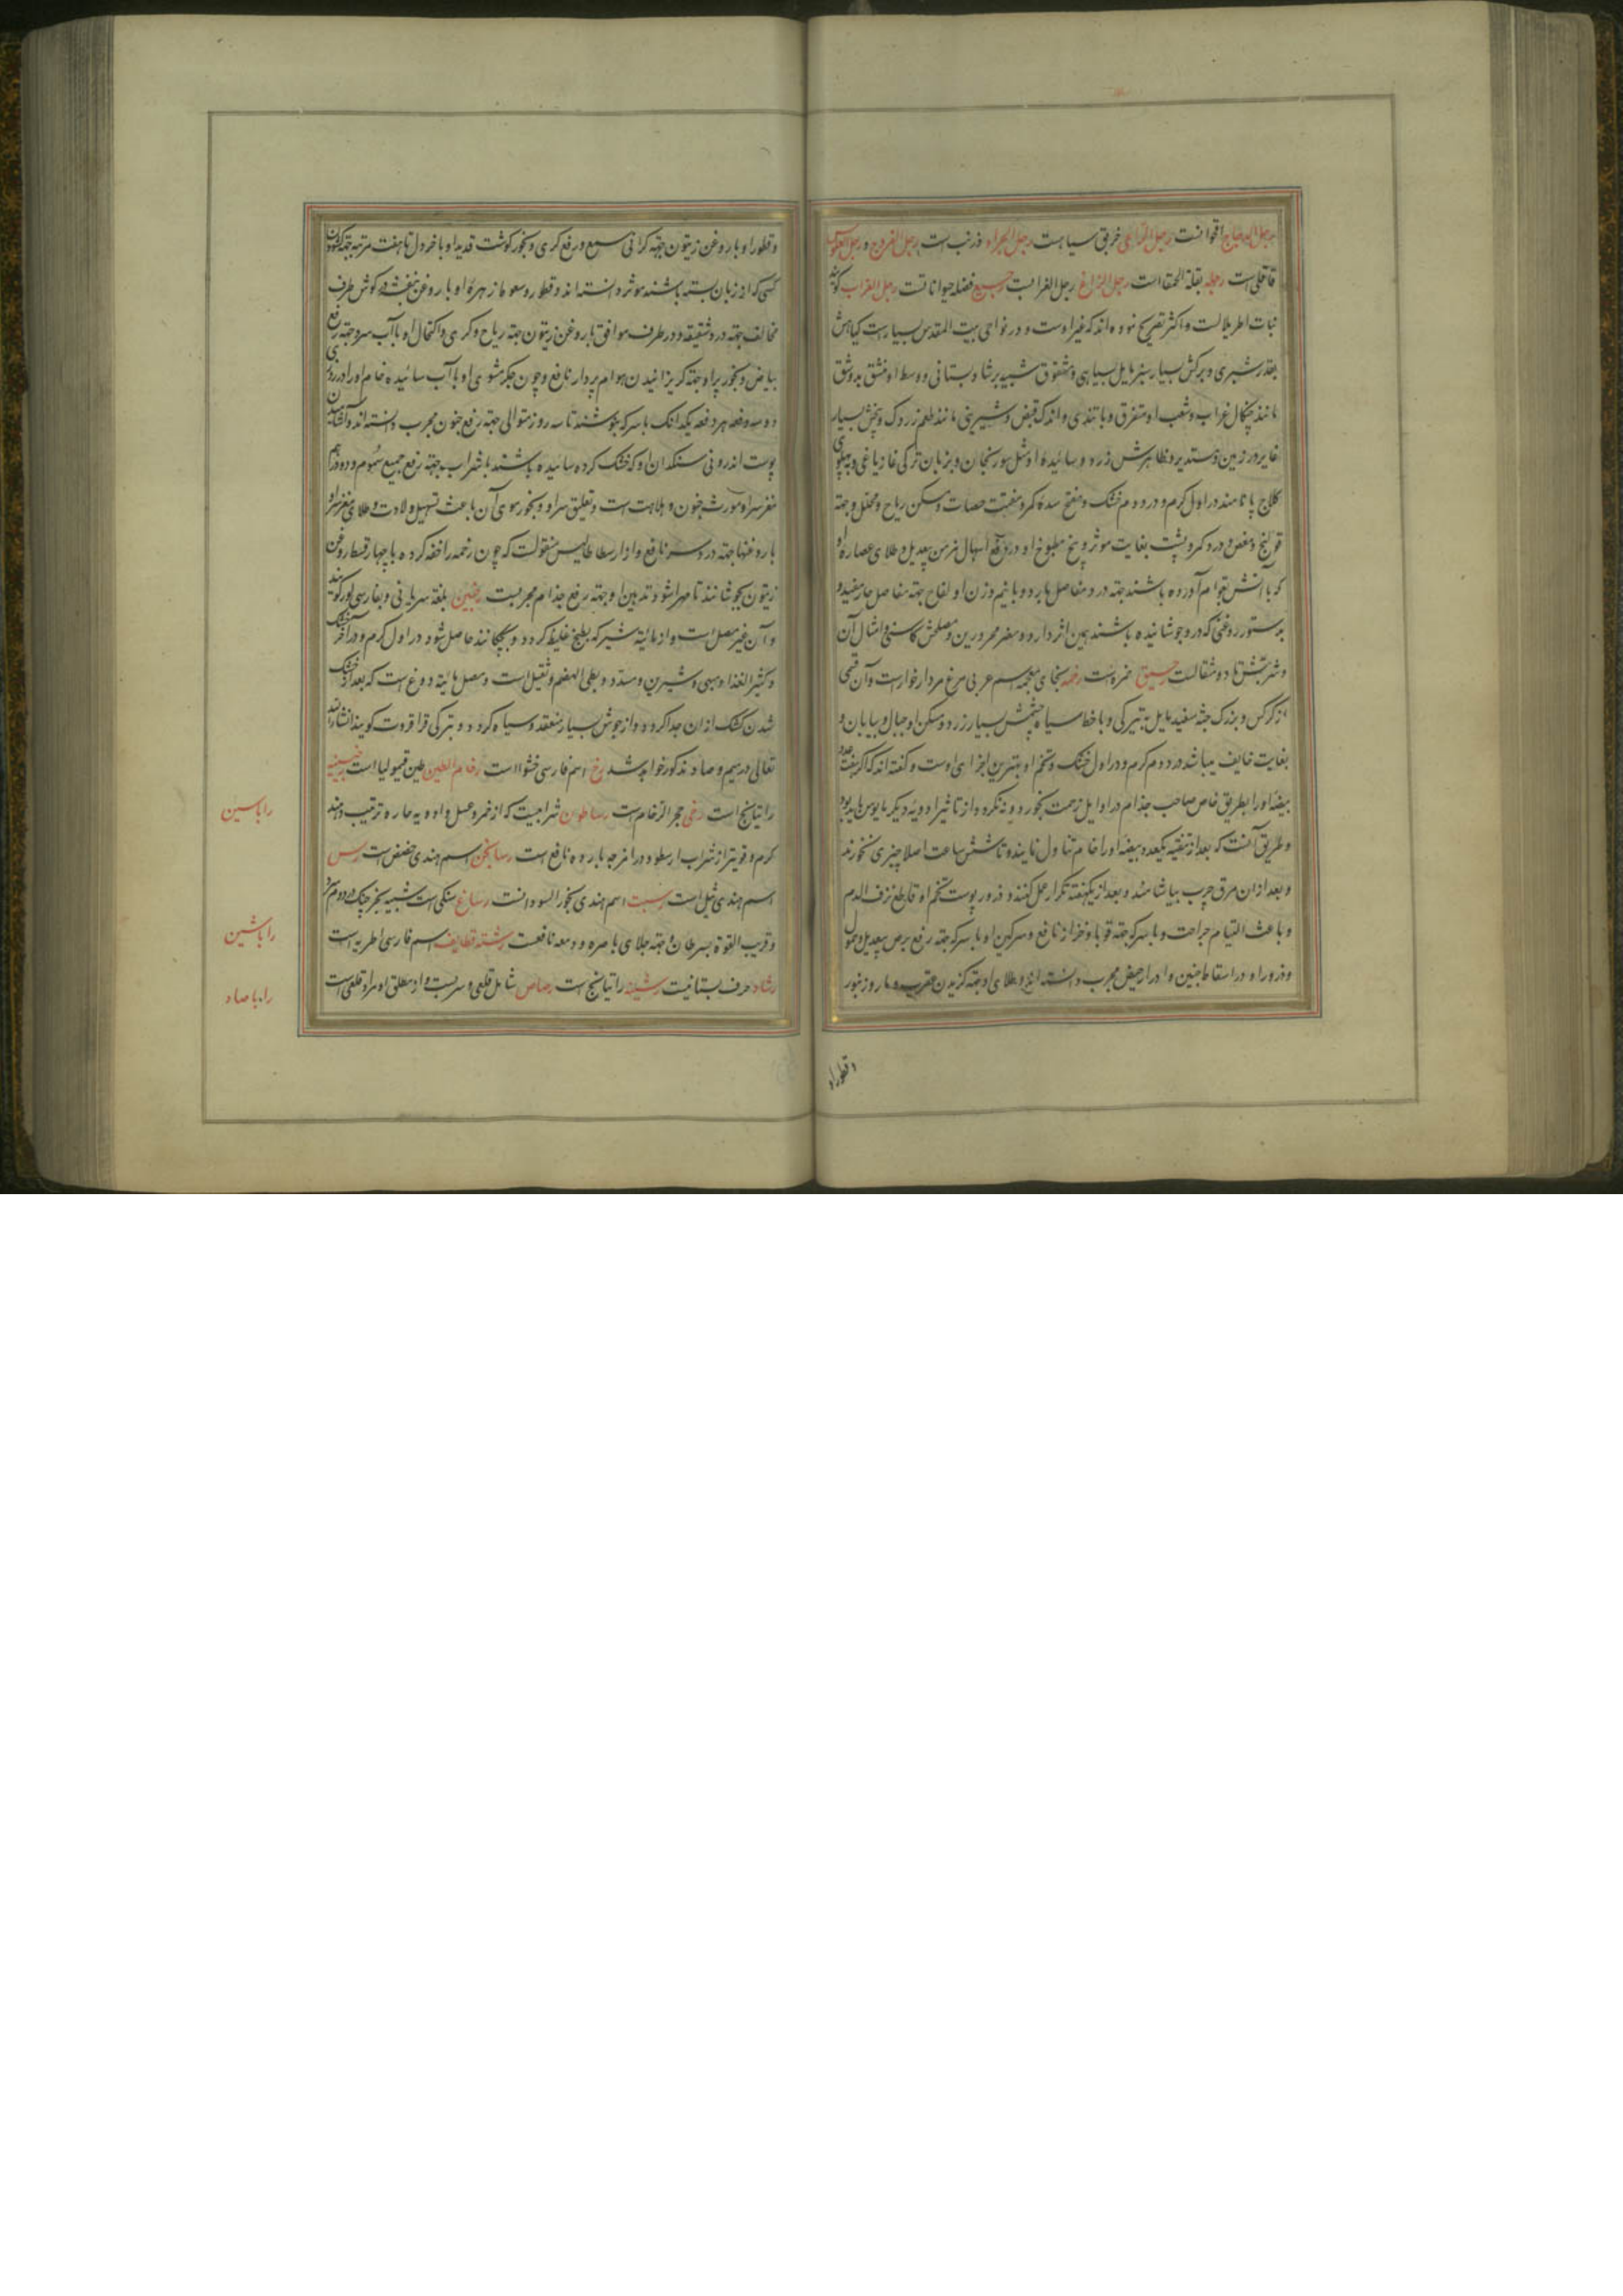 رجل الدجاج اقحوانست رجل الراعی خرقی سیاهست رجل الجراد ذرنب است رجل الفروج و رجل العلوس
قاقلی است رجله بقلة الحمقا است رجل الزاغ رجل الغرابست رجیع فضله حیواناتست رجل الغراب گویند
نبات اطریلالست و اکثر تصریح نموده‌اند که غیر اوست و در نواحی بیت المقدس بسیارست گیاهش
بقدر شبری و برکش بسیار سبز مایل بسیاهی و مشقوق شبیه برشاد بستانی و وسط او منشق بدو شق
مانند چنگال غراب و شعب او متفرق و با تندی و اندک قبض و شیرینی مانند طعم زردک و بیخش بسیار
غایر در زمین و مستدیر و ظاهرش زرد و سائیده او مثل سورنجان و بزبان ترکی غازیاغی و بپهلوی
کلاج پا نامند در اول گرم و در دوم خشک و مفتح سده گمرد مفتت حصات و مسکن ریاح و محلل و جهة
قولنج و مغص و درد کمر و پشت بغایت موثر و بیخ مطبوخ او در رفع اسهال مزمن بیعدیل و طلای عصاره او
که با آتش بقوام آورده باشند جهة درد مفاصل بارد و با نیم وزن او لفاح جهة مفاصل حار مفید و
بدستور روغنی که در و جوشانیده باشند همین اثر دارد و مضر محرورین و مصلحش کاسنی و امثال آن
و شربتش تا دو مثقالست رحیق خمروست رخمه بخای معجمه اسم عربی مرغ مردار خوارست و آن قسمی
از کرکس و بزرک جثه سفید مایل به تیرگی و با خط سیاه چشمش بسیار زرد و مسکن او جبال و بیابان و
بغایت خایف میباشد در دوم گرم و در اول خشک و تخم او بهترین اجزای اوست و گفته‌اند که اگر هفت عدد
بیضه او را بطریق خاص صاحب جذام در اوایل زحمت بخورد و به نکرد و از تاثیر ادویه دیگر مایوس باید بود
و طریق آنست که بعد از تنقیه یکعدد بیضه او را خام تناول نمایند و تا شش ساعت اصلا چیزی نخورند
و بعد از آن مرق چرب بیاشامند و بعد از یکهفته تکرار عمل کنند و ذرور پوست تخم او قاطع نزف الدم
و باعث التیام جراحت و با سرکه جهة قوبا و خزاز نافع و سرکین او با سرکه جهة رفع برص بیعدیل و حمول
و ذرور او در اسقاط جنین و ادرار حیض مجرب دانسته‌اند و طلای او جهة گزیدن عقرب و مار و زنبور
و قطور او
و قطور او با روغن زیتون جهة گرانی سمع و رفع کری و بخور گوشت قدید او با خردل تا هفت مرتبه جهة گشودن
کسی که از زبان بسته باشند موثر دانسته‌اند و قطور و سعوط زهره او با روغن بنفشه در گوش طرف
مخالف جهة درد شقیقه و در طرف موافق با روغن زیتون جهة ریاح و کری و اکتحال او با آب سرد جهة رفع
بیاض و بخور پر او جهة گریزانیدن هوام پردار نافع و چون جگر مشوی او با آب سائیده خام او را در روزی
دو سه دفعه هر دفعه یکدانگ با سرکه بنوشند تا سه روز متوالی جهة رفع جنون مجرب دانسته‌اند و آشامیدن
پوست اندرونی سنگدان او که خشک کرده سائیده باشند با شراب جهة رفع جمیع سموم و دو درهم
مغز سر او مورث جنون و بلاهت است و تعلیق سر او و بخور موی آن باعث تسهیل ولادت و طلای مغز سر او
با روغنها جهة درد سر نافع و از ارسطاطالیس منقولست که چون رخمه را خفه کرده با چهار قسط روغن
زیتون بجوشانند تا مهرا شود تدهین او جهة رفع جذام مجربست رخبین بلغة سریانی و بفارسی لور گویند
و آن غیر مصل است و از مائیة شیر که بطبخ غلیظ گردد و بچکانند حاصل شود در اول گرم و در آخر خشک
و کثیر الغذا و مبهی و شیرین و مسدد و بطی الهضم و ثقیل است و مصل مائیة دوغ است که بعد از خشک
شدن کشک از آن جدا گردد و از جوش بسیار منعقد و سیاه گردد و بترکی قراقروت گویند انشاء الله
تعالی در میم و صاد مذکور خواهد شد رخ اسم فارسی خشوا است رخام الطین طین قیمولیا است رخبینه
راتیانج است رخی حجر الرخام است رساطون شرابیست که از خمر و عسل و ادویه حاره ترتیب دهند
گرم و قویتر از شراب ارسطو و در امزجه بارده نافع است رسانجن اسم هندی حضض است رس
اسم هندی ثیل است رسبت اسم هندی بخور السودانست رساغ سنگی است شبیه بخرچنگ در دوم سرد
و قریب القوة بسرطان و جهة جلای باصره و دمعه نافعست رشته قطایف اسم فارسی اطریه است
رشاد حرف بستانیست رشینه راتیانج است رصاص شامل قلعی و سربست و از مطلق او مراد قلعی است
را با سین
را با شین
را با صاد